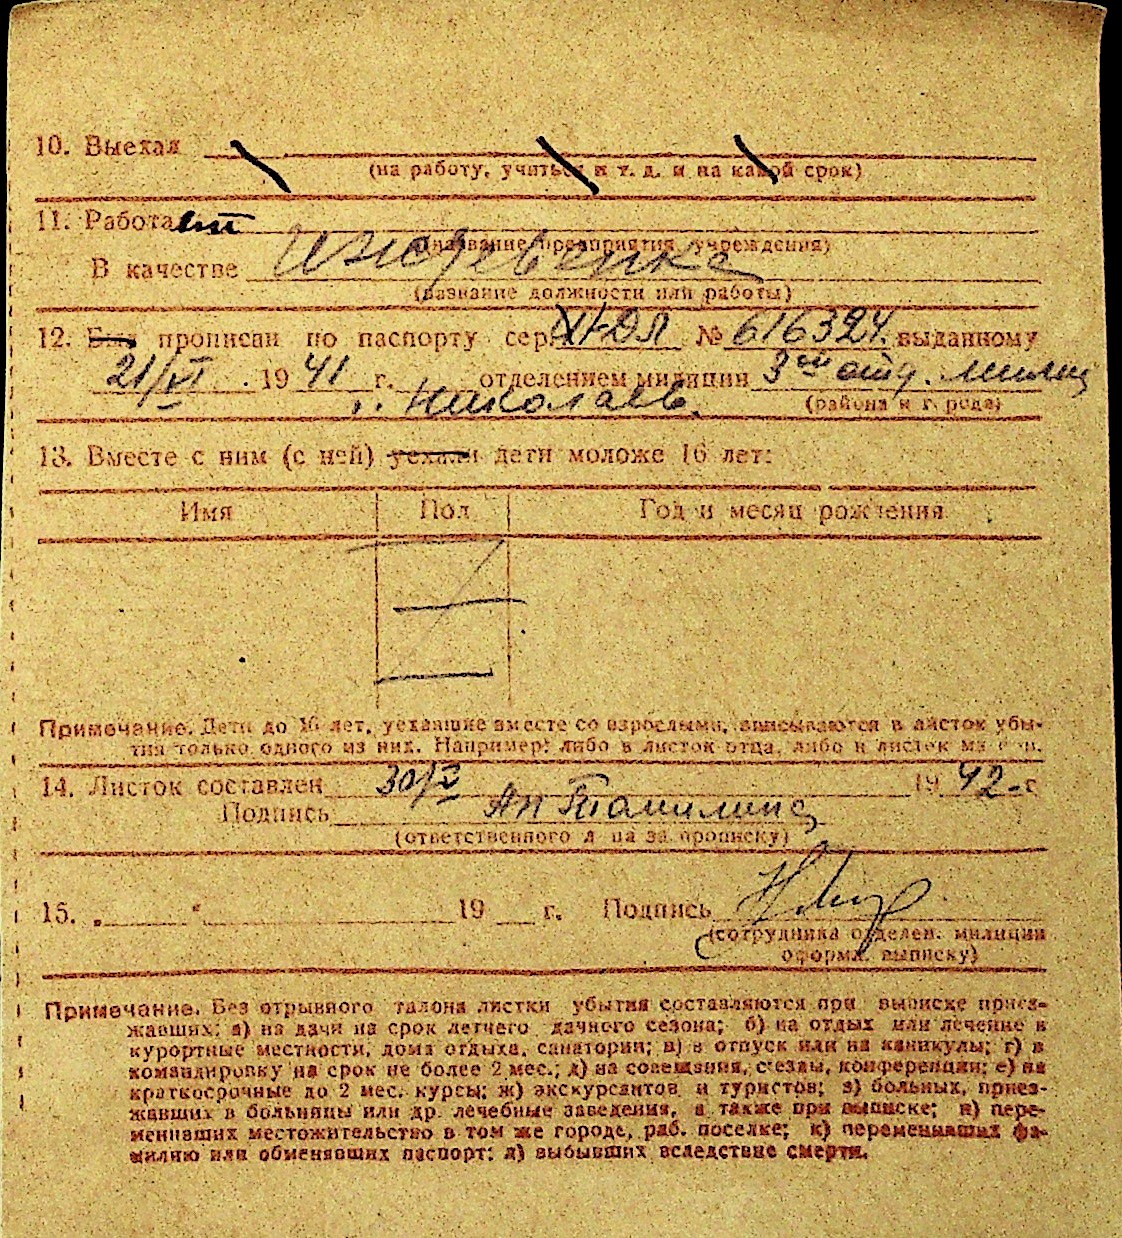 10. Выехал
(на работу, учиться и т. д. и на какой срок)
11. Работает
(название предприятия, учреждения)
В качестве Иждевенка
(название должности или работы)
12. Был прописан по паспорту сер. -ДЛ № 616324. выданному
21/VI . 1941 г. отделением милиции 3ем отд. милиц
г. Николаев.
(района и города)
13. Вместе с ним (с ней) уехали дети моложе 16 лет:
Имя Пол Год и месяц рождения
Примечание. Дети до 16 лет, уехавшие вместе со взрослыми, вписываются в листок убы-
тия только одного из них. Например: либо в листок отца, либо в листок матери.
14. Листок составлен 30/V 1942 - г
Подпись
(ответственного лица за прописку)
15. „ “ 19 г. Подпись
(сотрудника отделен. милиции
оформл. выписку)
Примечание. Без отрывного талона листки убытия составляются при выписке приез-
жавших: а) на дачи на срок летнего дачного сезона; б) на отдых или лечение в
курортные местности, дома отдыха, санатории; в) в отпуск или на каникулы; г) в
командировку на срок не более 2 мес.; д) на совещания, съезды, конференции; е) на
краткосрочные до 2 мес. курсы; ж) экскурсантов и туристов; з) больных, приез-
жавших в больницы или др. лечебные заведения, а также при выписке; и) пере-
менивших местожительство в том же городе, раб. поселке; к) переменивших фа-
милию или обменявших паспорт; л) выбывших вследствие смерти.